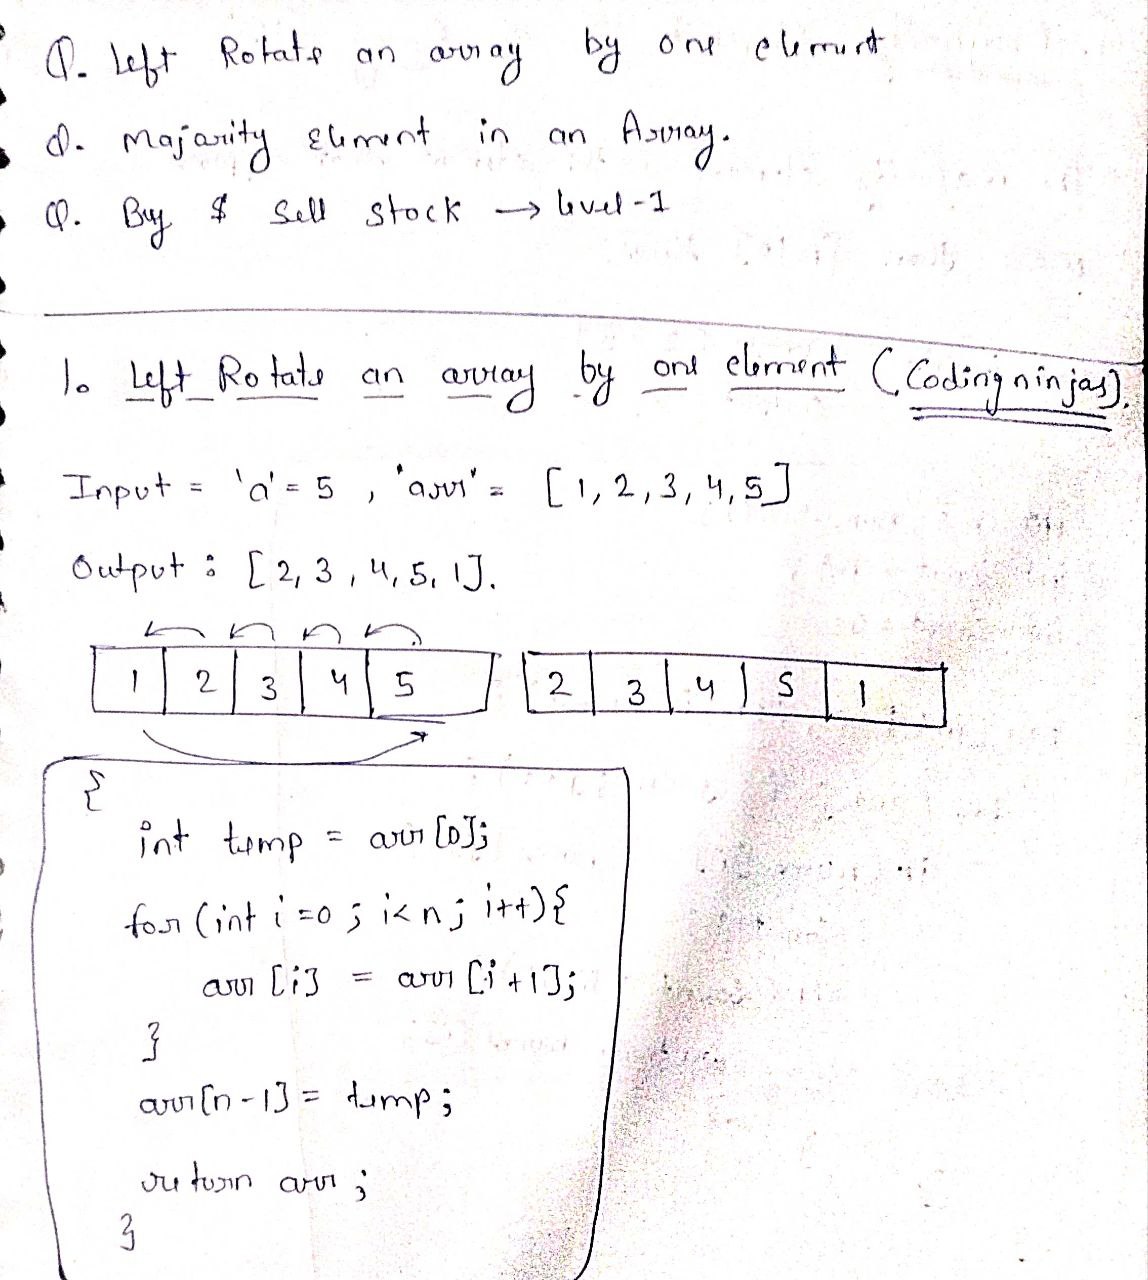 Q. Left Rotate an array by one element
Q. Majarity Element in an Array.
Q. Buy $ Sell stock → level-1
1. Left Rotate an array by one element (Codingninjas).
Input = 'a' = 5 , 'arr' = [1, 2, 3, 4, 5]
Output : [2, 3, 4, 5, 1].
1 2 3 4 5 2 3 4 5 1
{
int temp = arr[0];
for (int i = 0 ; i < n ; i++) {
arr [i] = arr [i + 1];
}
arr[n - 1] = temp ;
return arr ;
}